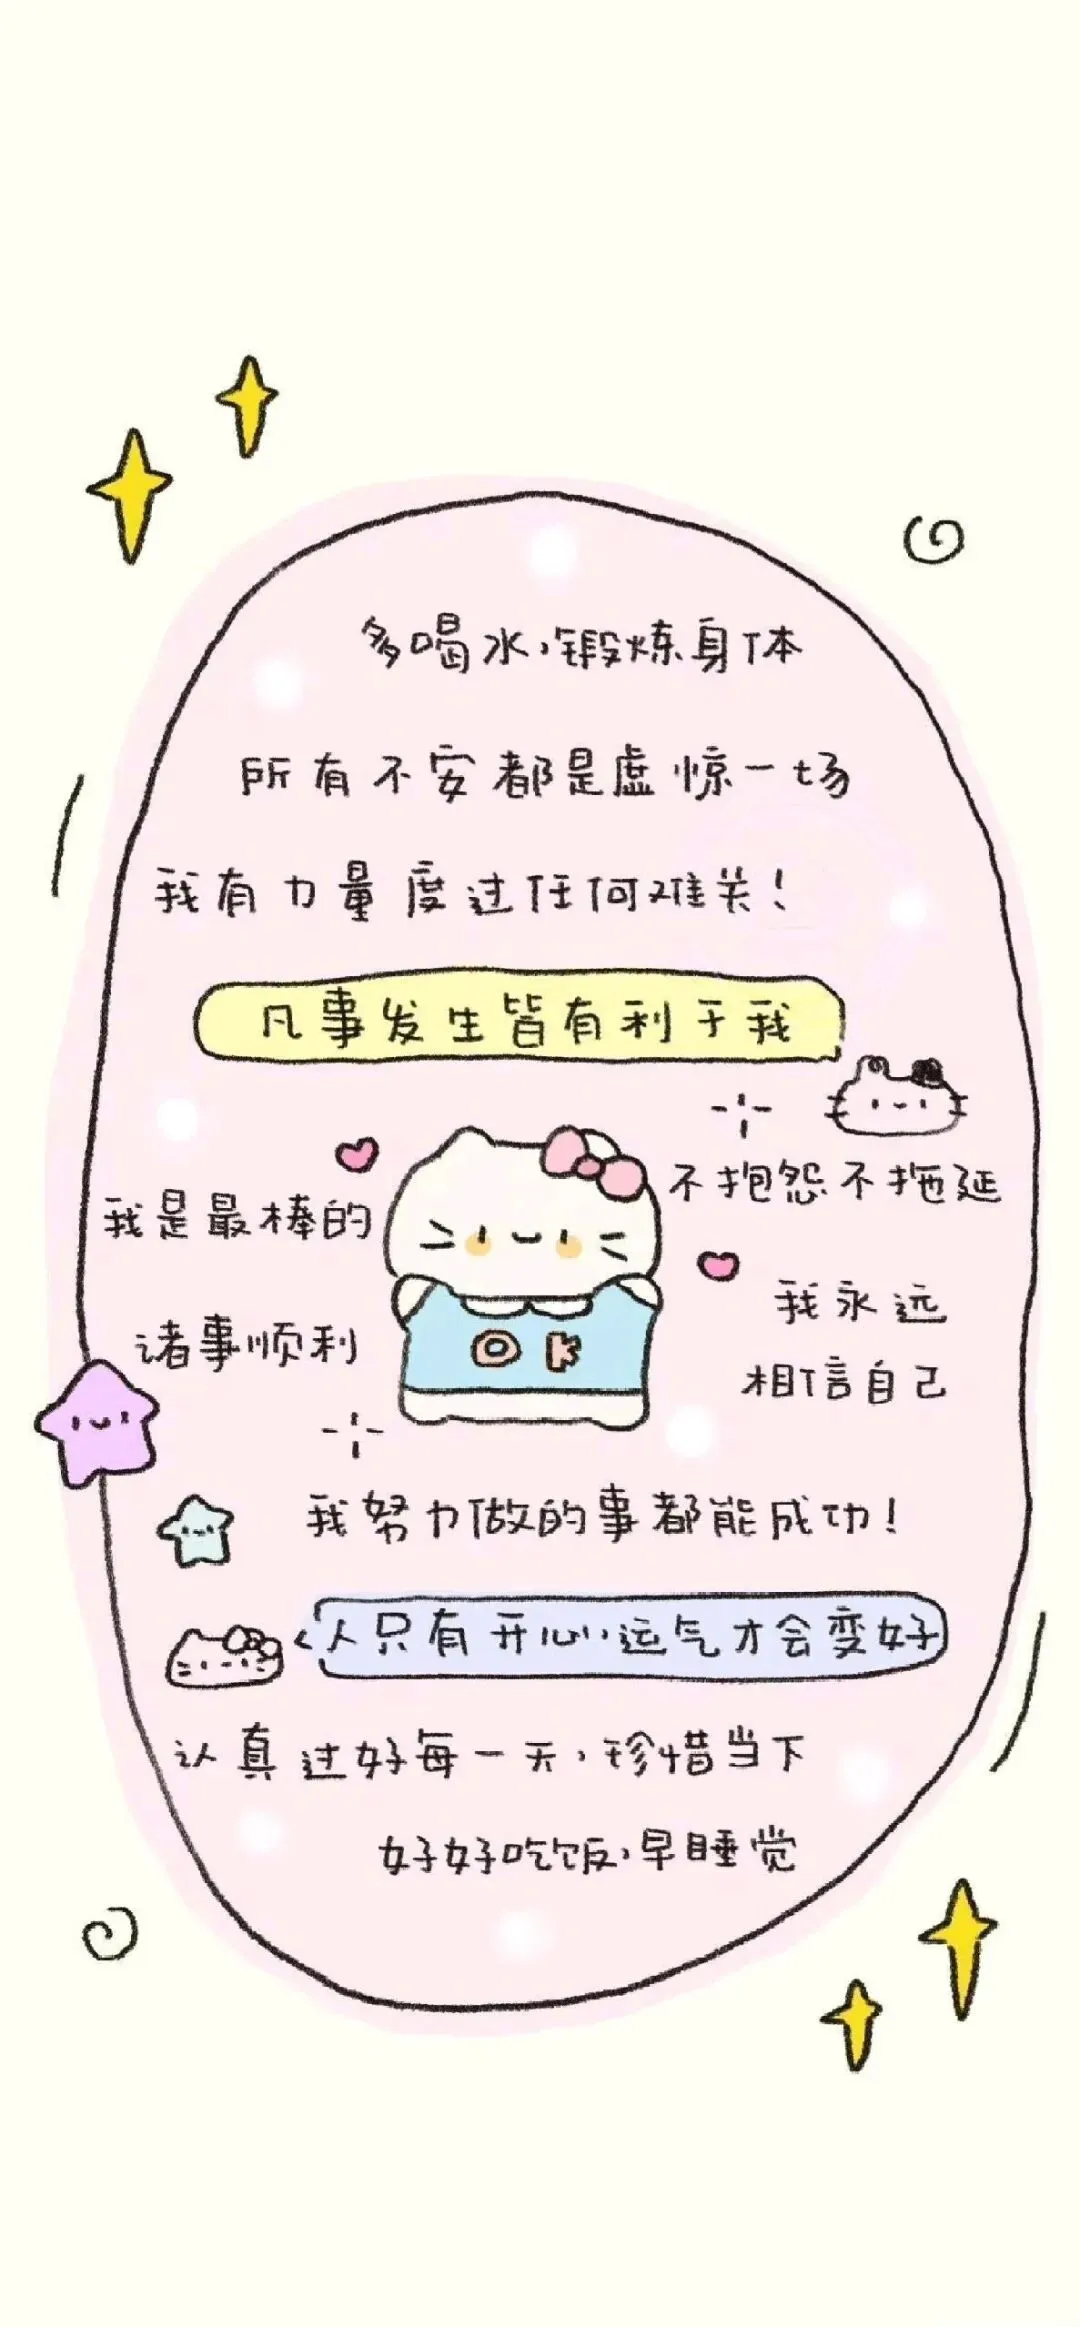 多喝水,锻炼身体
所有不安都是虚惊一场
我有力量度过任何难关!
凡事发生皆有利于我
不抱怨不拖延
我是最棒的
我永远
相信自己
诸事顺利
OK
我努力做的事都能成功!
人只有开心,运气才会变好
认真过好每一天,珍惜当下
好好吃饭,早睡觉